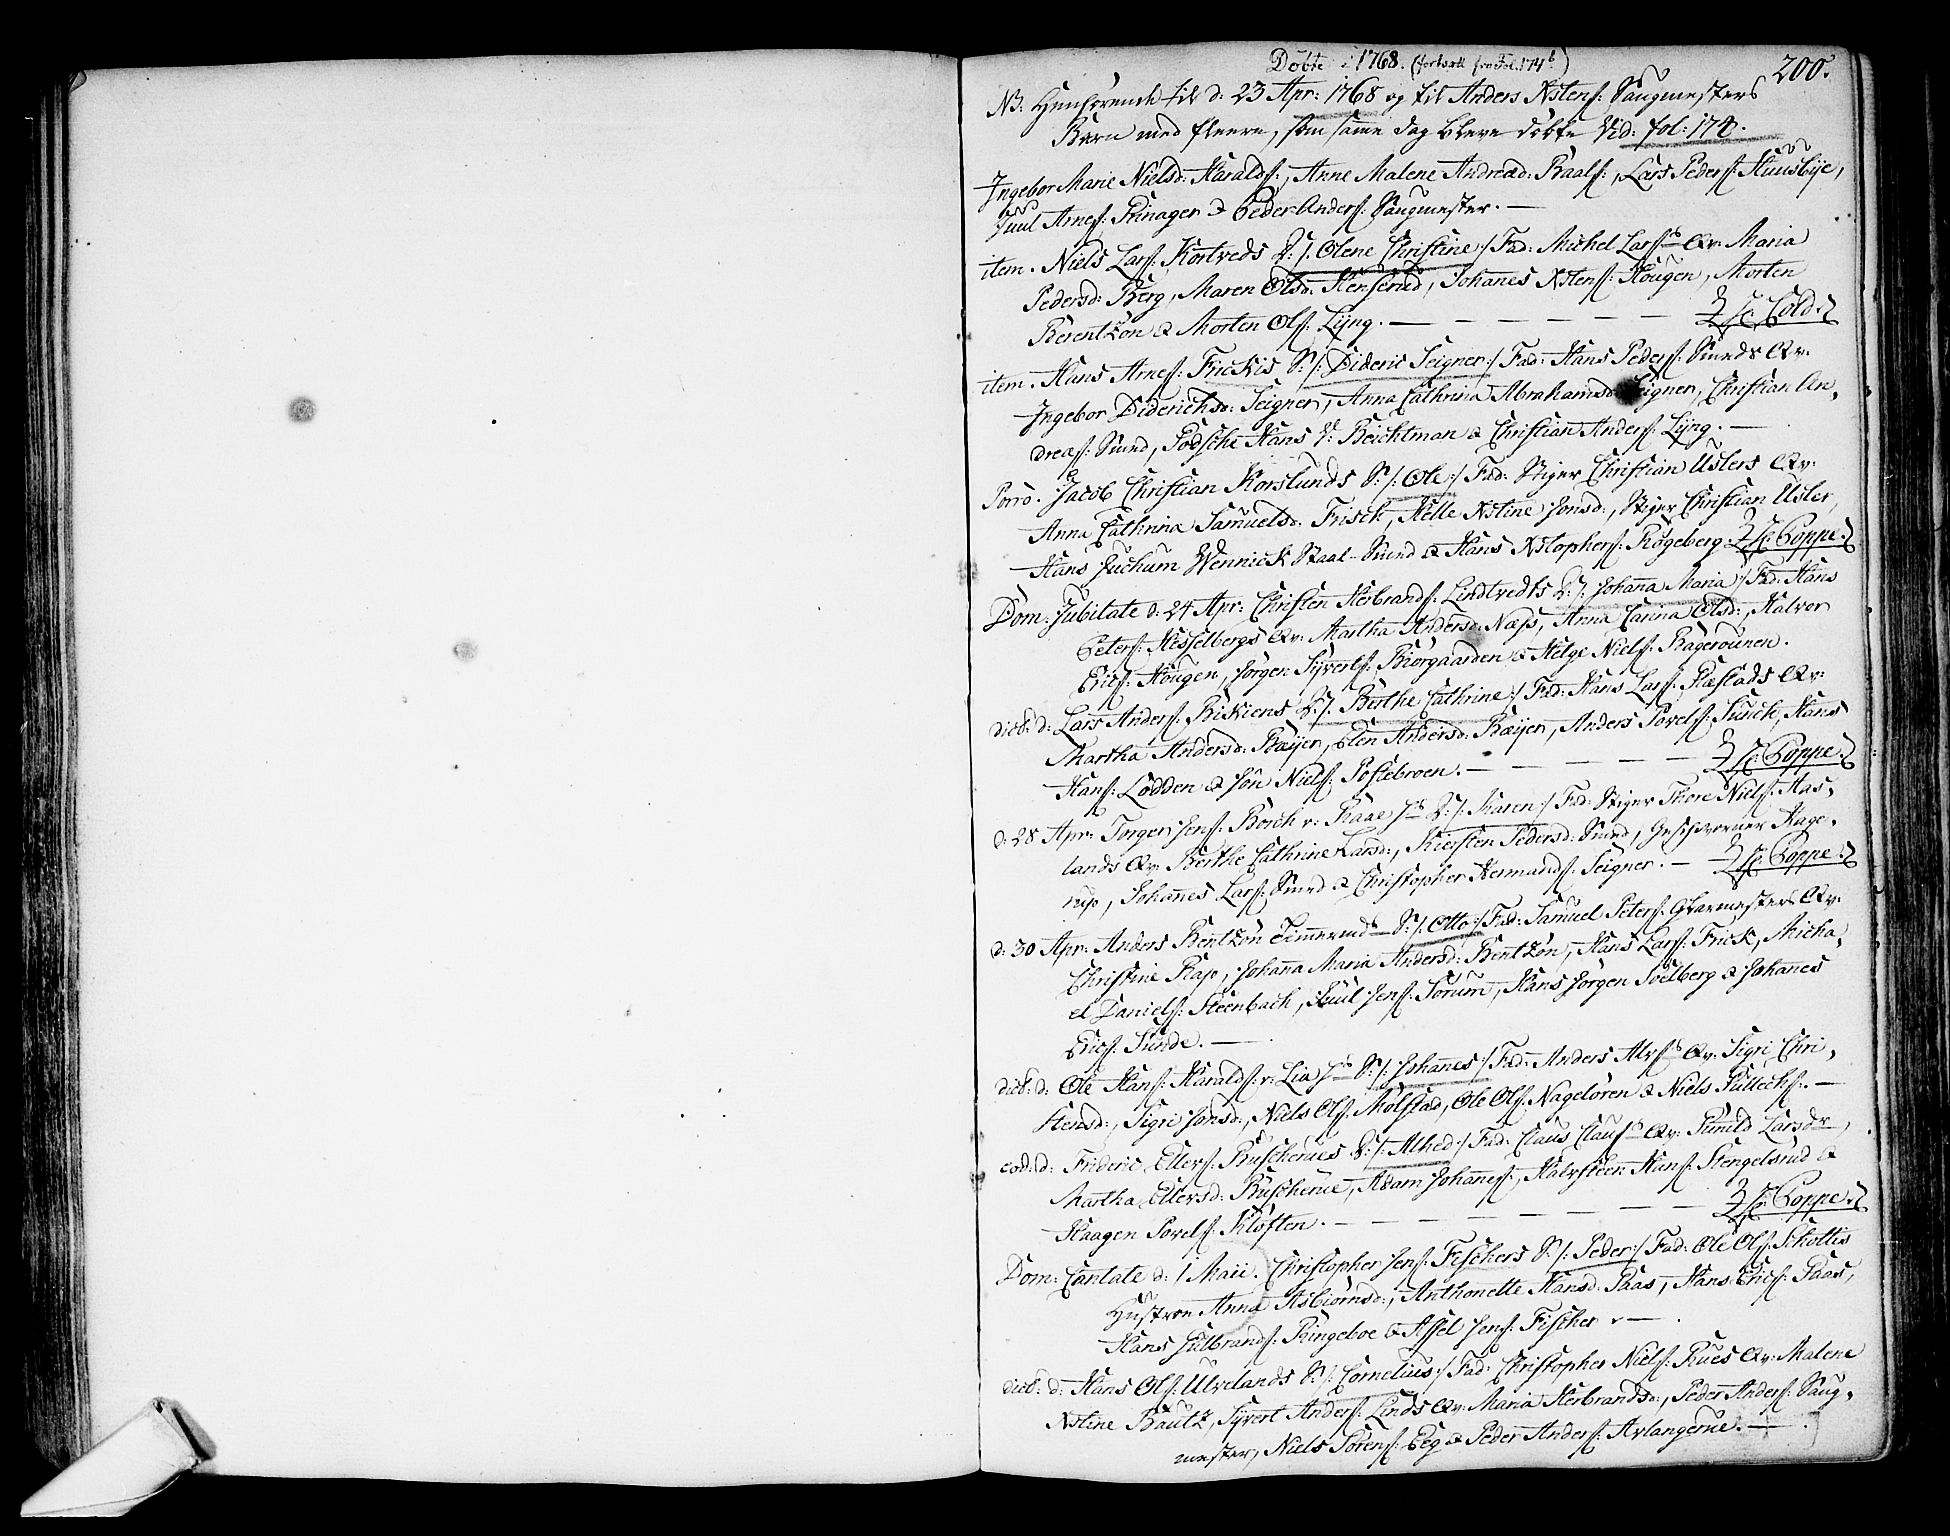 Döbte i 1768. (fortsatt fra Fol. 174b)
200.
NB. Henhörende til d: 23 Apr: 1768 og til Anders Xstens: Saugmesters
Børn med fleere, som same dag bleve döbte Vid: fol: 174.
Ingebor Marie Nielsd: Haralds:, Anne Malene Andread: Raals:, Lars Peders: Huusbÿe,
Juul Arnes: Rinager & Peder Anders: Saugmester. —
item. Niels Lars: Kortveds D: /: Olene Christine :/ Fad: Michel Lars: Qv: Maria
Pedersd: Berg, Maren Olsd: Henserud, Johanes Xstens: Hougen, Morten
Berentzön & Morten Ols: Lÿng. — — — — — Sc: Cold.
item. Hans Arnes: Frickis S: /: Dideric Seigner :/ Fad: Hans Peders: Smeds Qv:
Ingebor Diderichsd: Seigner, Anna Cathrina Abrahamsd: Seigner, Christian An,
dreæs: Smed, Hans V: Beichtman & Christian Anders: Lÿng. —
Porro. Jacob Christian Korslunds S: /: Ole :/ Fad: Stiger Christian Uslers Qv:
Anna Cathrina Samuelsd: Frisck, Helle Xstine Jonsd:, Stiger Christian Usler,
Hans Juchum Wennick Staal-Smed & Hans Xstophers: Rogeberg. Sc: Poppe.
Dom: Jubilate d: 24 Apr: Christen Herbrands: Lindtvedts D: /: Johanna Maria :/ Fad: Hans
Peters: Hesselbergs Qv: Martha Andersd: Næss, Anna Carina Olsd:, Halvor
Erics: Hougen, Jörgen Sÿverts: Biörgaarden & Helge Niels: Bagerounen.
dicto: d: Lars Anders: Bikiens D: /: Berthe Cathrine :/ Fad: Hans Lars: Ræstads Qv:
Martha Andersd: Bæÿer, Elen Andersd: Bæÿer, Anders Povels: Funck, Hans
Hans: Lodden & Jön Niels: Postebroen. — — — — — Sc: Poppe.
d: 28 Apr: Torger Jens: Borch v: Raae D: /: Karen :/ Fad: Stiger Thore Niels: Aas,
lands Qv: Berthe Cathrine Larsd:, Kiersten Pedersd: Smed, Geschworner Hage,
rup, Johanes Lars: Smed & Christopher Hermands: Seigner. — Sc: Poppe.
d: 30 Apr: Anders Bentzön Timmermds S: /: Otto :/ Fad: Samuel Peters: Glarmesters Qv:
Christine Rasp, Johana Maria Andersd: Bentzön, Hans Lars: Frick, Micha,
el Daniels: Steenbach, Juul Jens: Sorum, Hans Jörgen Soelberg & Johanes
Erics: Sunde. —
dicto: d: Ole Hans: Haralds: v: Lia S: /: Johanes :/ Fad: Anders Alvs: Qv: Sigri Chri,
stensd:, Sigri Jonsd:, Niels Ols: Molstad, Ole Ols: Nagelören & Niels Rullechs: —
eod: d: Frideric Ellers: Buskerues D: /: Alhed :/ Fad: Claus Claus: Qv: Gunild Larsdr,
Martha Ellersd: Buskerue, Adam Johanes:, Halvsteen Hans: Stengelsrud &
Haagen Povels: Klöften. — — — — — Sc: Poppe.
Dom: Cantate d: 1 Maii. Christopher Jens: Fischers S: /: Peder :/ Fad: Ole Ols: Schottis
Hustroe Anna Asbiörnsd:, Anthonette Hansd: Paas, Hans Erics: Paas,
Hans Gulbrands: Ringeboe & Assel Jens: Fischer. —
dicto: d: Hans Ols: Ulvelands S: /: Cornelius :/ Fad: Christopher Niels: Rues Qv: Malene
Xstine Bautz, Sÿvert Anders: Linds Qv: Maria Herbrandsd:, Peder Anders: Saug,
mester, Niels Sörens: Eeg & Peder Anders: Avlangerue. —